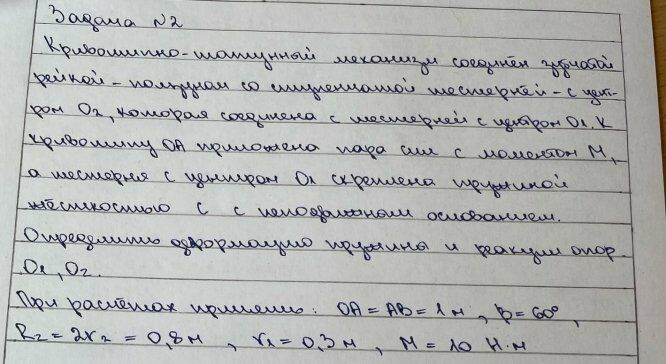 Задача №2
Кривошипно-шатунный механизм соединён зубчатой
рейкой-ползуном со ступенчатой шестерней - с цент-
ром O₂, которая соединена с шестерней с центром O₁. К
кривошипу OA приложена пара сил с моментом M,
а шестерня с центром O₁ скреплена пружиной
жёсткостью C с неподвижным основанием.
Определить деформацию пружины и реакции опор
O₁, O₂.
При расчётах принять: OA = AB = 1 м, β = 60°,
R₂ = 2r₂ = 0,8 м, r₁ = 0,3 м, M = 10 Н·м